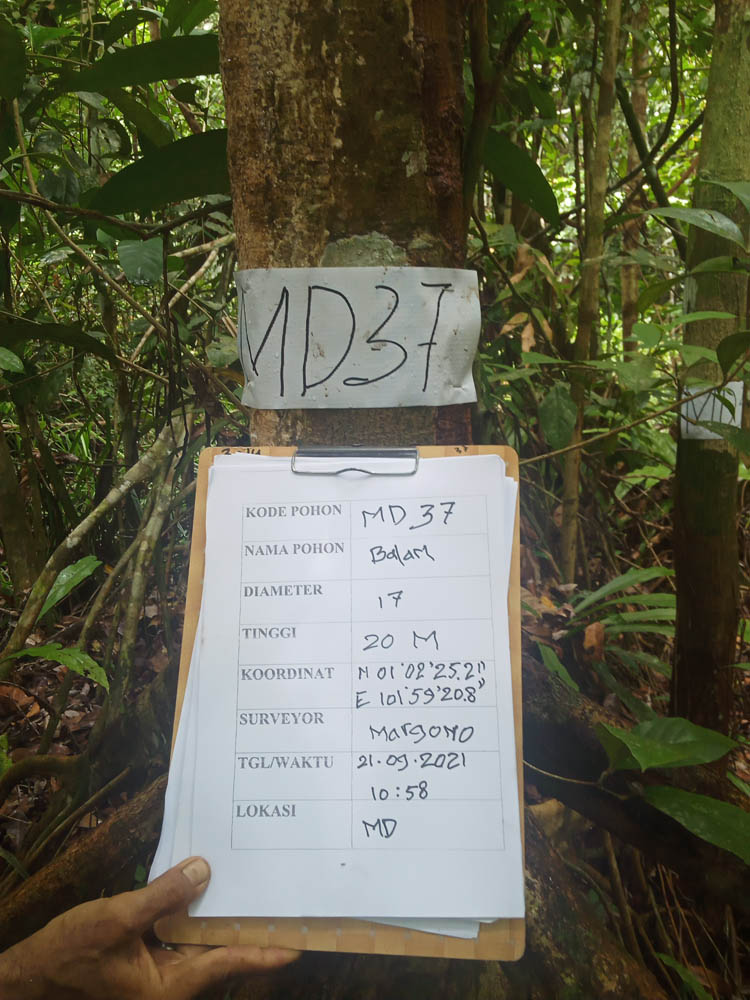 MD37
KODE POHON MD 37
NAMA POHON Balam
DIAMETER 17
TINGGI 20 M
KOORDINAT N 01°02'25.2"
E 101°59'20.8"
SURVEYOR Margono
TGL/WAKTU 21.09.2021
10:58
LOKASI MD